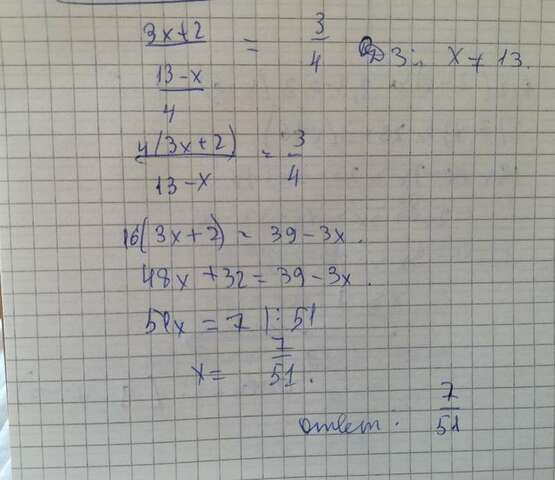 3x+2 / (13-x / 4) = 3/4 ОДЗ: x ≠ 13.
4(3x+2) / 13-x = 3/4
16(3x+2) = 39-3x.
48x+32 = 39-3x.
51x = 7 |: 51
x = 7/51.
ответ: 7/51